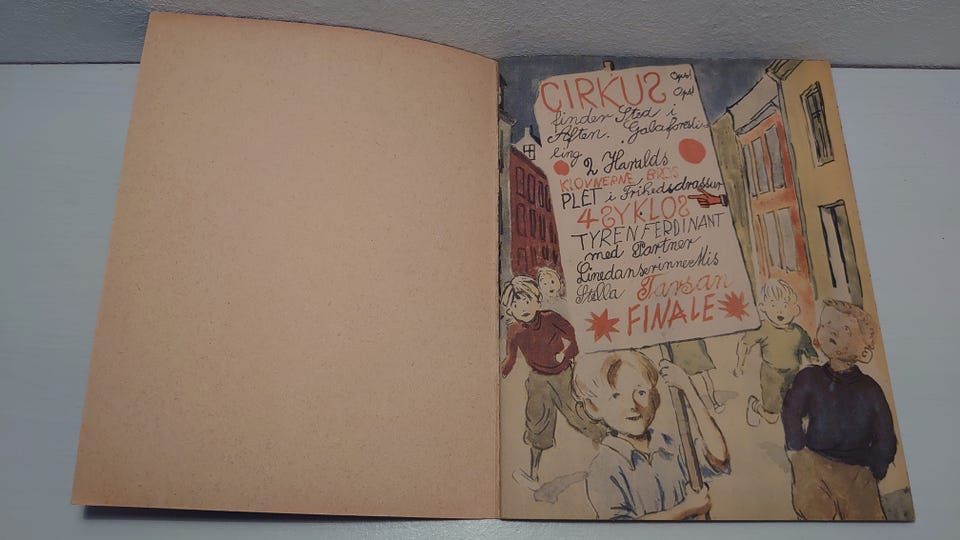 CIRKUS Ops!
Ops!
finder Sted i
Aften. Gallaforestil
ling 2 Haralds
KLOVNERNE BROS
PLET i Frihedsdrassur
4 SYKLOS
TYREN FERDINANT
med Partner
Linedanserinne Mis
Stella Tarsan
FINALE